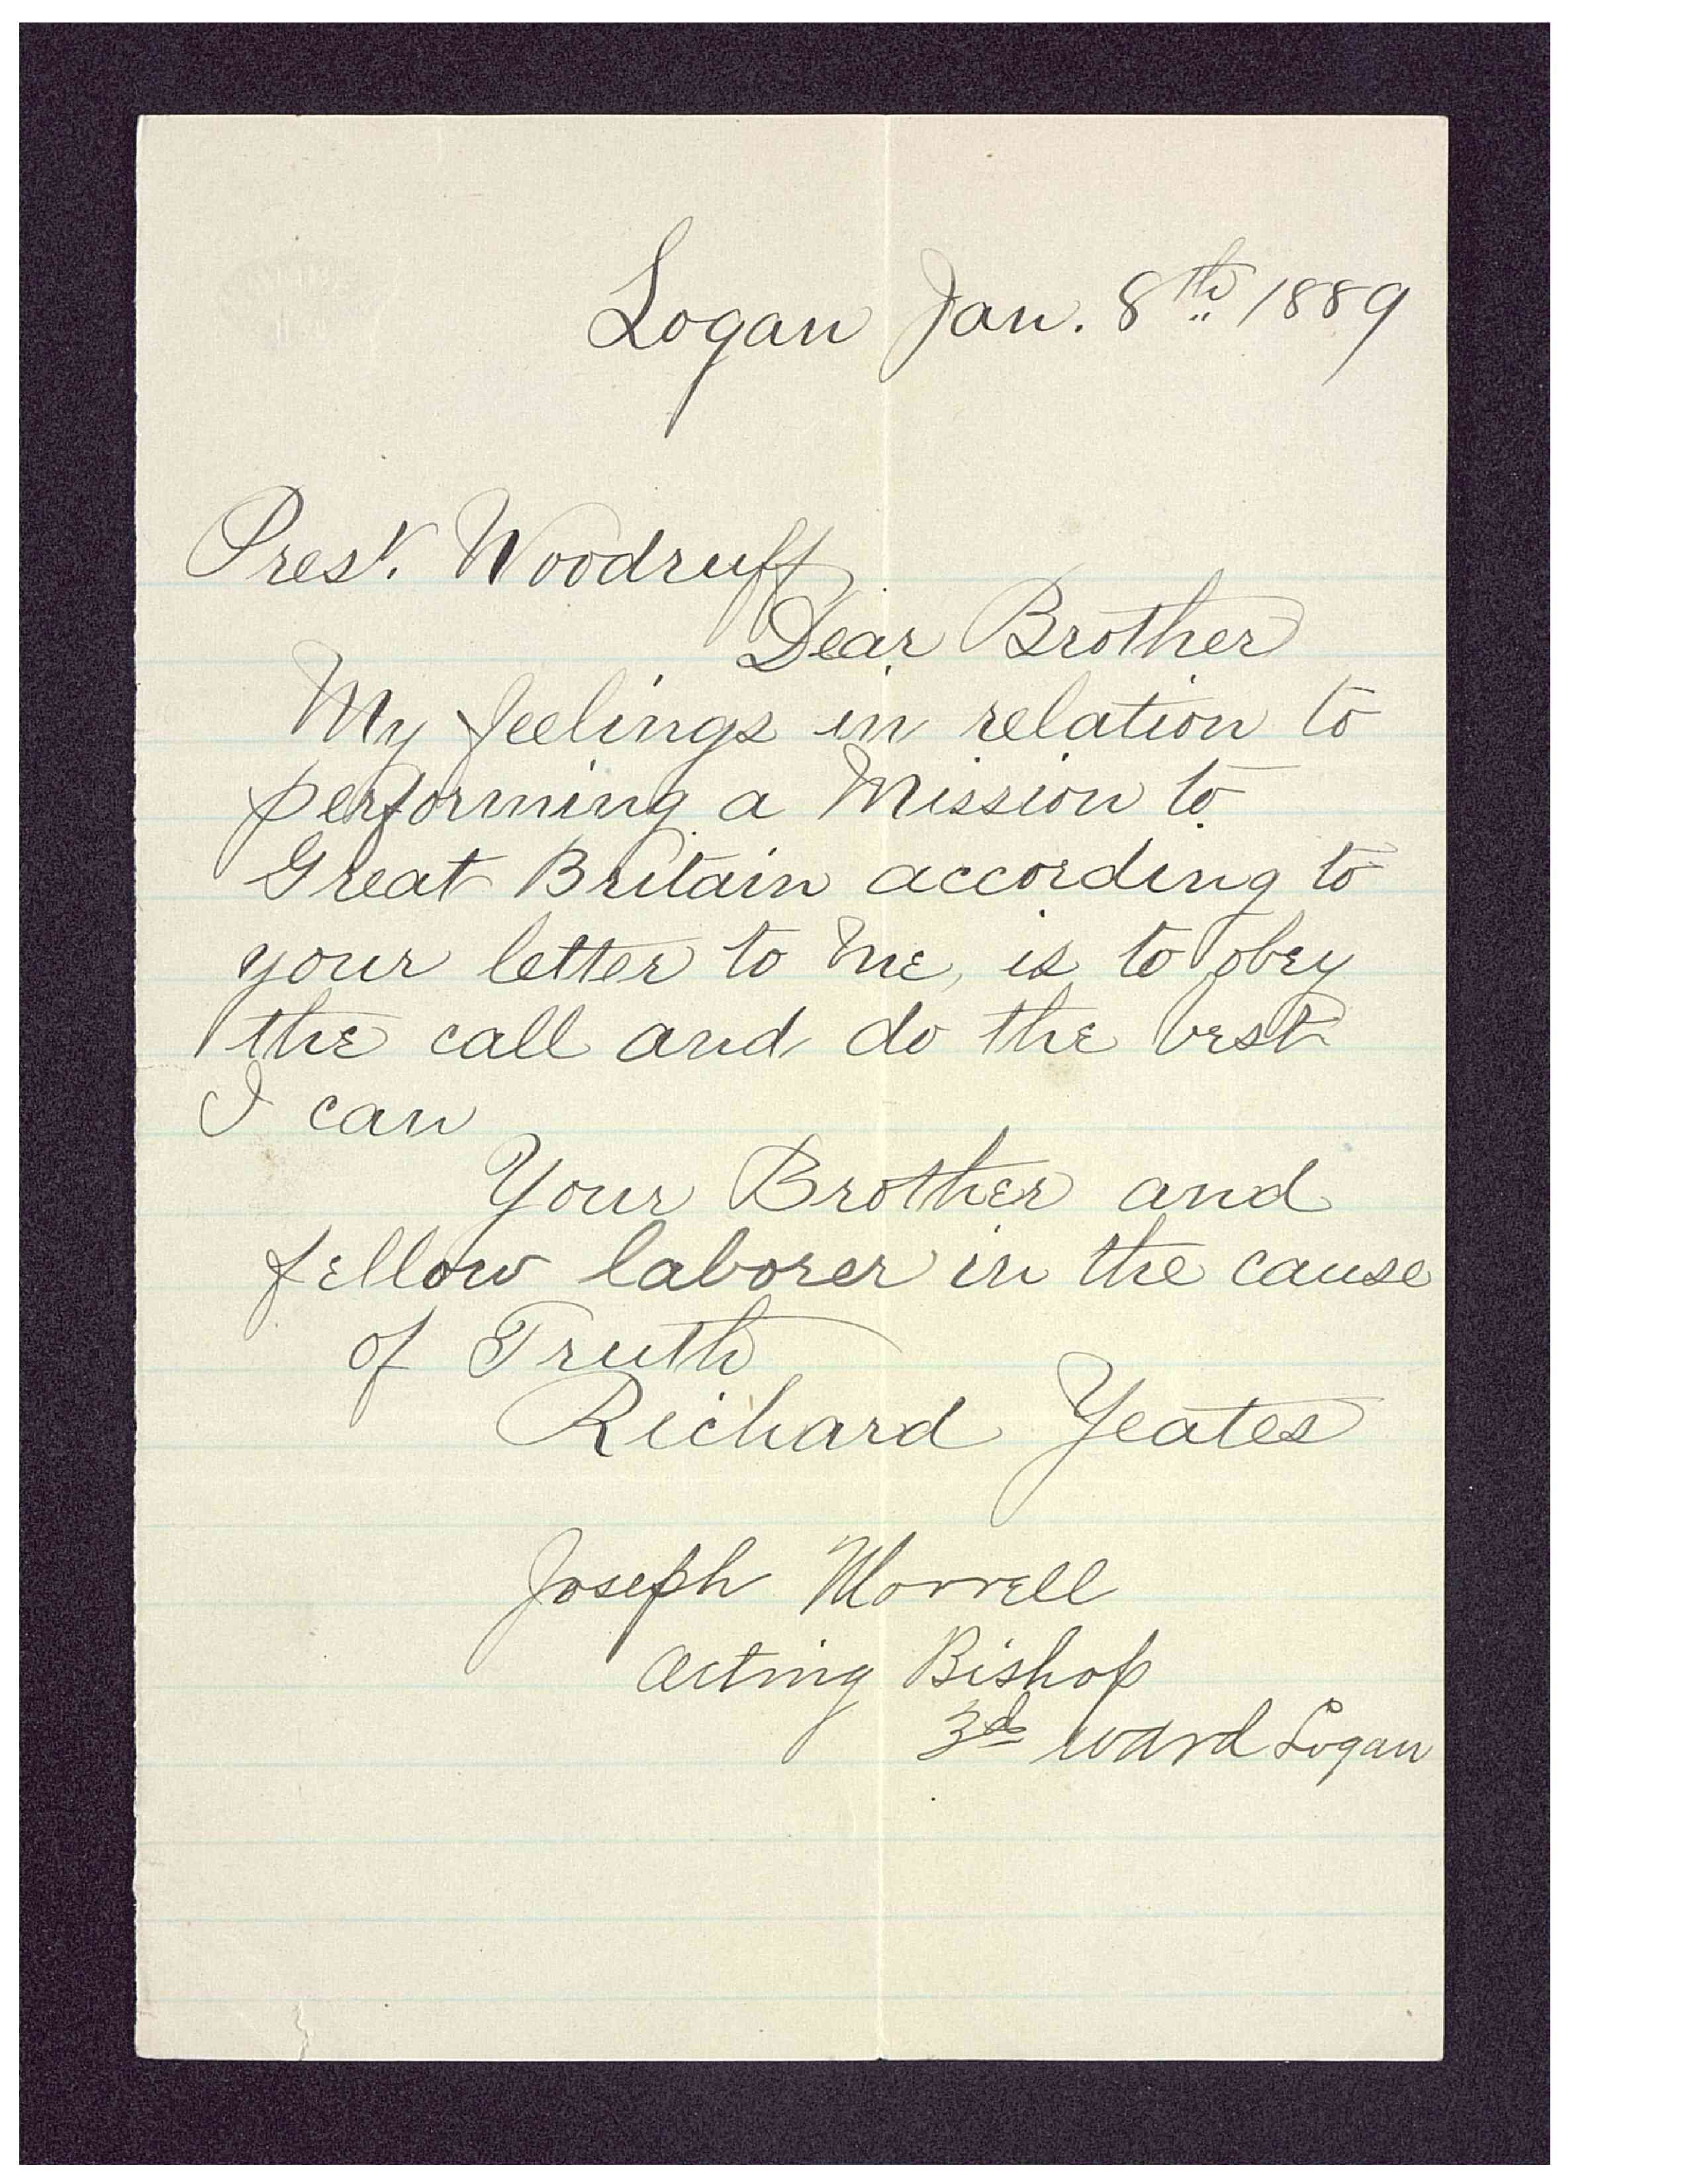 Logan Jan. 8th 1889
Prest. Woodruff
Dear Brother
My feelings in relation to
performing a Mission to
Great Britain according to
your letter to Me, is to obey
the call and do the best
I can
Your Brother and
fellow laborer in the cause
of Truth
Richard Yeates
Joseph Morrell
Acting Bishop
3d ward Logan